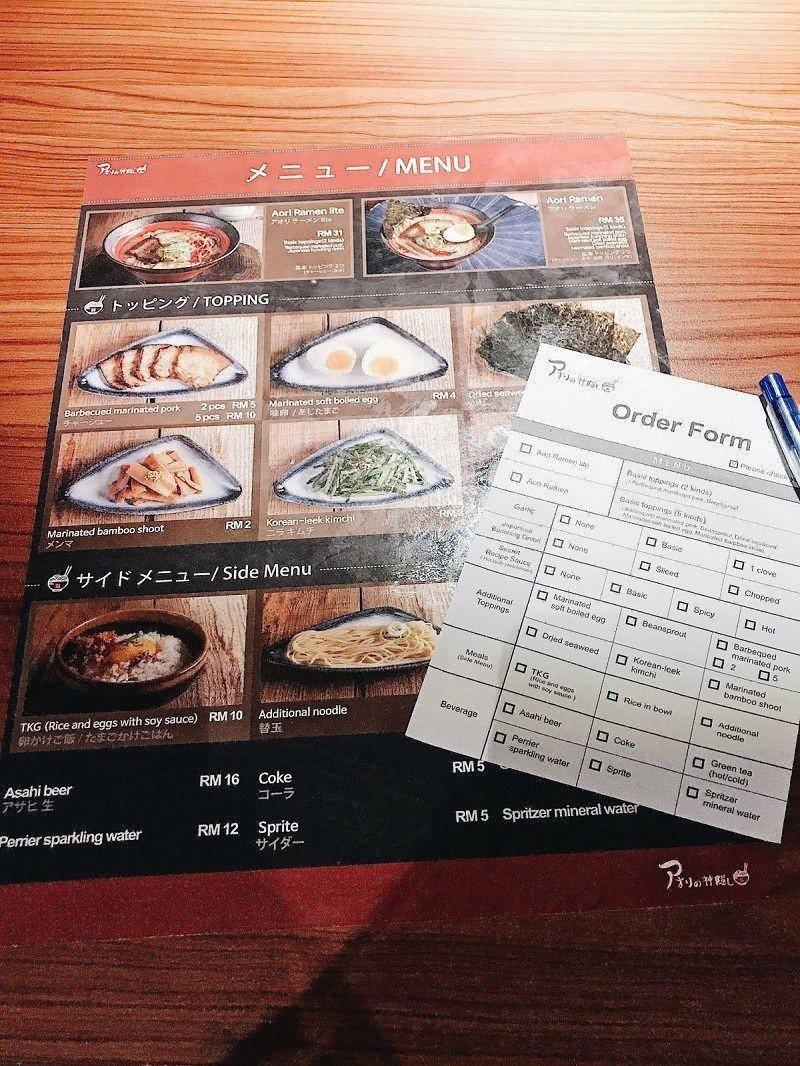 アオリの神隠し
メニュー / MENU
Aori Ramen lite
アオリラーメン lite
RM 31
Basic toppings (2 kinds)
Aori Ramen
アオリ ラーメン
RM 35
Basic toppings (5 kinds)
トッピング / TOPPING
Barbecued marinated pork 2 pcs RM 5
チャーシュー 5 pcs RM 10
Marinated soft boiled egg RM 4
味卵 / あじたまご
Dried seaweed
Marinated bamboo shoot RM 2
メンマ
Korean-leek kimchi
ニラ キムチ
サイド メニュー / Side Menu
TKG (Rice and eggs with soy sauce) RM 10
卵かけご飯 / たまごかけごはん
Additional noodle
替玉
Asahi beer RM 16
アサヒ 生
Coke RM 5
コーラ
Perrier sparkling water RM 12
Sprite RM 5
サイダー
Spritzer mineral water
アオリの神隠し
アオリの神隠し
Order Form
MENU
Please check
Aori Ramen lite
Basic toppings (2 kinds)
Aori Ramen
Basic toppings (5 kinds)
Garlic
None
Basic
1 clove
Japanese
Bunching Onion
None
Sliced
Chopped
Secret
Recipe Sauce
None
Basic
Spicy
Hot
Additional
Toppings
Marinated
soft boiled egg
Beansprout
Barbequed
marinated pork
2
5
Dried seaweed
Korean-leek
kimchi
Marinated
bamboo shoot
Meals
(Side Menu)
TKG
(Rice and eggs
with soy sauce)
Rice in bowl
Additional
noodle
Beverage
Asahi beer
Coke
Green tea
(hot/cold)
Perrier
sparkling water
Sprite
Spritzer
mineral water